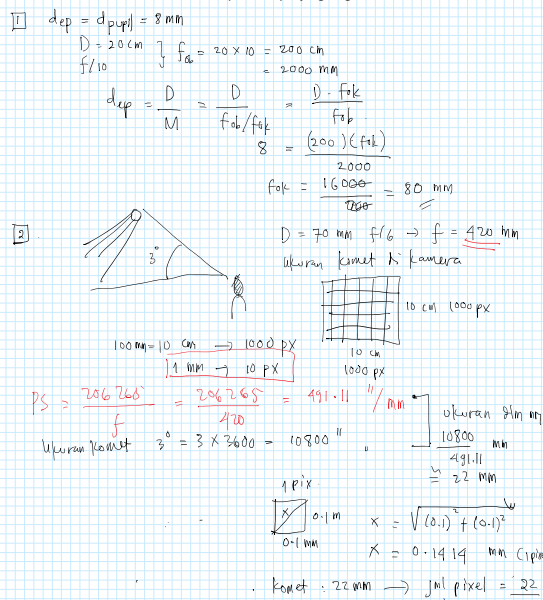 1 dep = dpupil = 8 mm
D = 20 cm
f/10
} fob = 20 x 10 = 200 cm
= 2000 mm
dep = D/M = D/(fob/fok) = D · fok/fob
8 = (200)(fok)/2000
fok = 16000/200 = 80 mm
2
3°
D = 70 mm f/6 → f = 420 mm
Ukuran komet di kamera
10 cm 1000 px
10 cm
1000 px
100 mm = 10 cm → 1000 px
1 mm → 10 px
PS = 206265/f = 206265/420 = 491.11 "/mm
Ukuran komet 3° = 3 x 3600 = 10800"
ukuran dlm mm
10800/491.11 mm
≈ 22 mm
1 pix
x
0.1 m
0.1 mm
x = √(0.1)² + (0.1)²
x = 0.1414 mm (1 pix
komet : 22 mm → jml pixel = 22